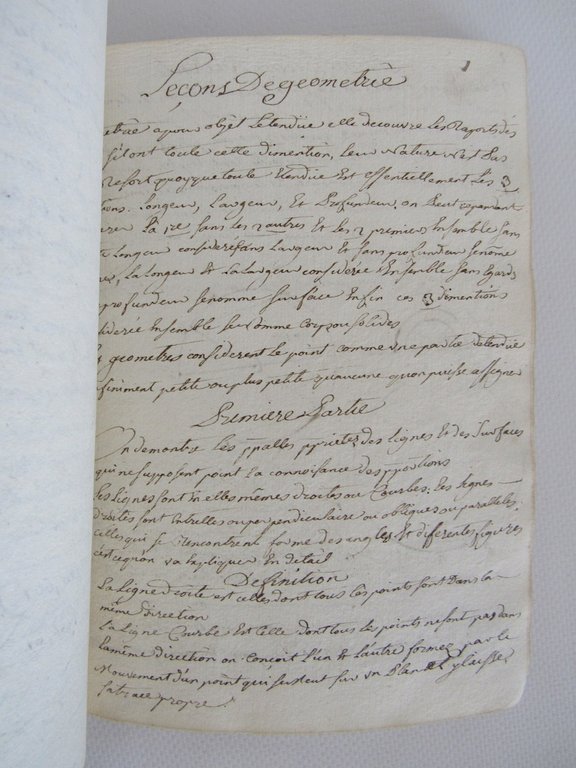 1
Leçons De geometrie
a pour objet Letendüe elle decouvre les Raports des
ont toute cette dimention, leur Nature n'est pas
quoyque toute Etendüe Est essentiellement Les 3
Longeur, Largeur, Et Profondeur, on peut cependant
La 1re sans les 2 autres Et les 2 premiers Ensemble sans
Longeur considerée sans Largeur Et sans profondeur senôme
La Longeur & La Largeur considerée Ensemble sans Egards
profondeur senomme surface Enfin ces 3 dimentions
Ensemble se nomme corps ou solides
geometres considerent le point comme une partie detendüe
infiniment petite ou plus petite qu'aucune qu'on puisse assigner
Premiere Partie
On demontre les pp̃alles pprietez des lignes Et des Surfaces
qui ne supposent point la connoisance des pportions
Les Lignes sont en elles mêmes droites ou Courbes; Les lignes
droites sont Entrelles ou perpendiculaire ou obliques ou paralleles.
celles qui se Rencontrent forme des angles Et differentes figures
c'est ce qu'on va Expliquer En detail
Definition
La Ligne droite est celle dont tous les points sont Dans la
même direction
La Ligne Courbe Est Celle dont tous les points ne sont pas dans
La même direction on Conçoit L'un & L'autre formez par le
Mouvement d'un point qui se meut sur un Plan Et y laisse
sa trace propre.